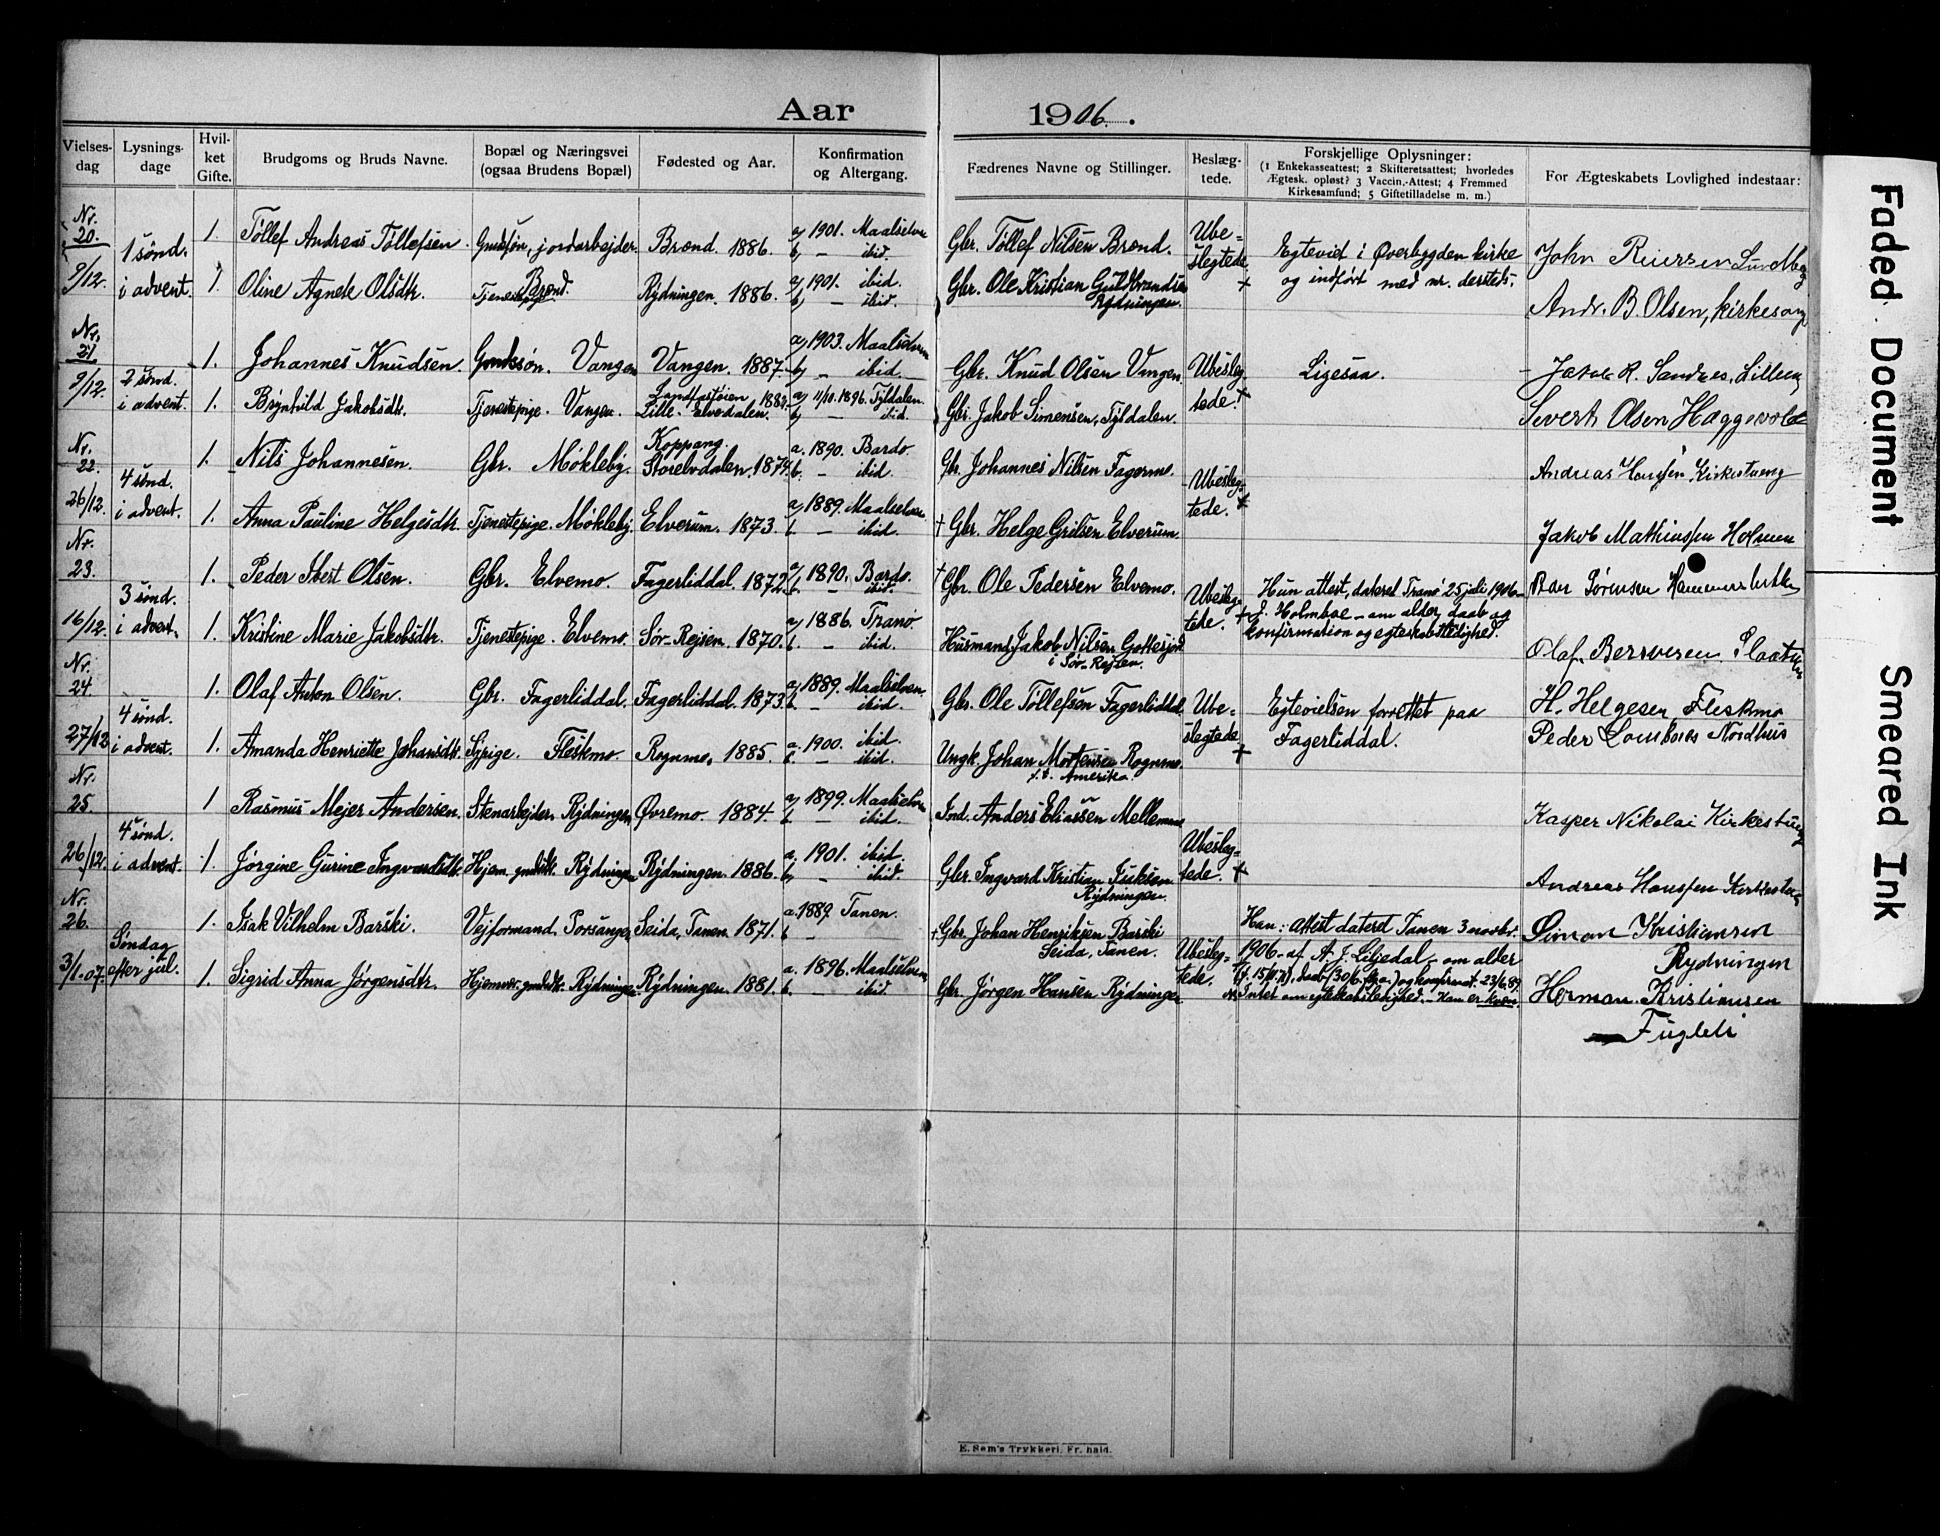 Aar 1906.
Vielsesdag
Lysningsdage
Hvilket Gifte.
Brudgoms og Bruds Navne.
Bopæl og Næringsvei (ogsaa Brudens Bopæl)
Fødested og Aar.
Konfirmation og Altergang.
Fædrenes Navne og Stillinger.
Beslægtede.
Forskjellige Oplysninger:
(1 Enkekasseattest; 2 Skifteretsattest; hvorledes
Ægtesk. opløst? 3 Vaccin.-Attest; 4 Fremmed
Kirkesamfund; 5 Giftetilladelse m. m.)
For Ægteskabets Lovlighed indestaar:
Nr. 20. 1. Tøllef Andreas Tøllefsen. jordarbejder. Brænd. 1886. a, 1901. Maalselven b, — ibid. Gbr. Tøllef Nilsen Brænd.
9/12. 1 sønd. i advent. 1. Oline Agnete Olsdtr. Tjenestepige Brænd. Rydningen. 1886. a, 1901. ibid. b, — ibid. Gbr. Ole Kristian Guldbrandsen Rydningen.
Ubeslegtede
Egteviet i Øverbygden kirke
og indført med nr. dersteds.
John
Andr. B. Olsen, kirkesang
Nr. 21 1. Johannes Knudsen Vangen Vangen. 1887. a, 1903. Maalselven b, — ibid. Gbr. Knud Olsen Vangen.
9/12. 2 sønd. i advent. 1. Brynhild Jakobsdtr. Tjenestepige. Vangen. Lille-Elvedalen. a, 11/10. 1896. Tyldalen b, — ibid. Gbr. Jakob Simensen, Tyldalen.
Ubeslegtede.
Ligesaa.
Jakob R. Sandnes,
Sivert Olsen
Nr. 22. 1. Nils Johannesen. Gbr. Møkleby. Koppang. Storelvdalen. 1874. a. 1890. Bardo. b. — ibid. Gbr. Johannes Nilsen Fagermo.
26/12. 4 sønd. i advent. 1. Anna Pauline Helgesdtr. Tjenestepige. Møkleby. Elverum. 1873. a, 1889. Maalselven b. — ibid. † Gbr. Helge Grilsen Elverum.
Ubeslegtede.
Andreas Hansen Kirkestueng
Jakob Mathiassen Holmen
Nr. 23. 1. Peder Sivert Olsen. Gbr. Elvemo. Fagerliddal. 1872. a, 1890. Bardo. b. — ibid. † Gbr. Ole Pedersen Elvemo.
16/12. 3 sønd. i advent. 1. Kristine Marie Jakobsdtr. Tjenestepige. Elvemo. Sør-Rejsen. 1870. a, 1886. Tranø b. — ibid. Husmand Jakob Nilsen i Sør-Rejsen.
Ubeslegtede.
Hun attest, dateret Tranø 25 juli 1906 —
J. Holmboe — om alder, daab og
konfirmation og egteskabsledighed.
Sørensen
Olaf
Nr. 24. 1. Olaf Anton Olsen. Gbr. Fagerliddal. Fagerliddal. 1873. a, 1889. Maalselven b. — ibid. Gbr. Ole Tøllefsen Fagerliddal
27/12 4 sønd. i advent. 1. Amanda Henriette Johansdtr. Sypige. Fleskmo. Rognmo. 1885. a. 1900. ibid. b. — ibid. Ungk. Johan Mortensen Rognmo. Amerika.
Ubeslegtede
Egtevielsen forrettet paa
Fagerliddal.
H. Helgesen Fleskmo
Peder Nordhus
Nr. 25. 1 Rasmus Mejer Andersen. Stenarbejder. Rydningen Øvremo. 1884. a, 1899. Maalselven b. — ibid. Ind. Anders Eliassen Mellemmo
26/12. 4 sønd. i advent. 1. Jørgine Gurine Ingvardsdtr. Hjem. Rydningen Rydningen. 1886. a. 1901. ibid. b, — ibid. Gbr. Ingvard Kristian Isaksen Rydningen.
Ubeslegtede.
Kasper Nikolai
Andreas Hansen
Nr. 26. 1. Isak Vilhelm Barski. Vejformand. Porsanger Seida, Tanen. 1871. a. 1887. Tanen. b — † Gbr. Johan Henriksen Barski Seida, Tanen.
3/1.07. Søndag efter jul. 1. Sigrid Anna Jørgensdtr. Rydningen Rydningen. 1881. a. 1896. Maalselven b. — ibid. Gbr. Jørgen Hansen Rydningen
Ubeslegtede.
Han: Attest dateret Tanen 3 novbr.
1906 — af A. J. Liljedal — om alder
og konfirmat. 23/6. 87.
Intet om egteskabsledighed. — Han er kvæn.
Simon Kristiansen
Rydningen
Herman Kristiansen
Fugleli
E. Sem's Trykkeri, Fr. hald.
Faded Document
Smeared Ink